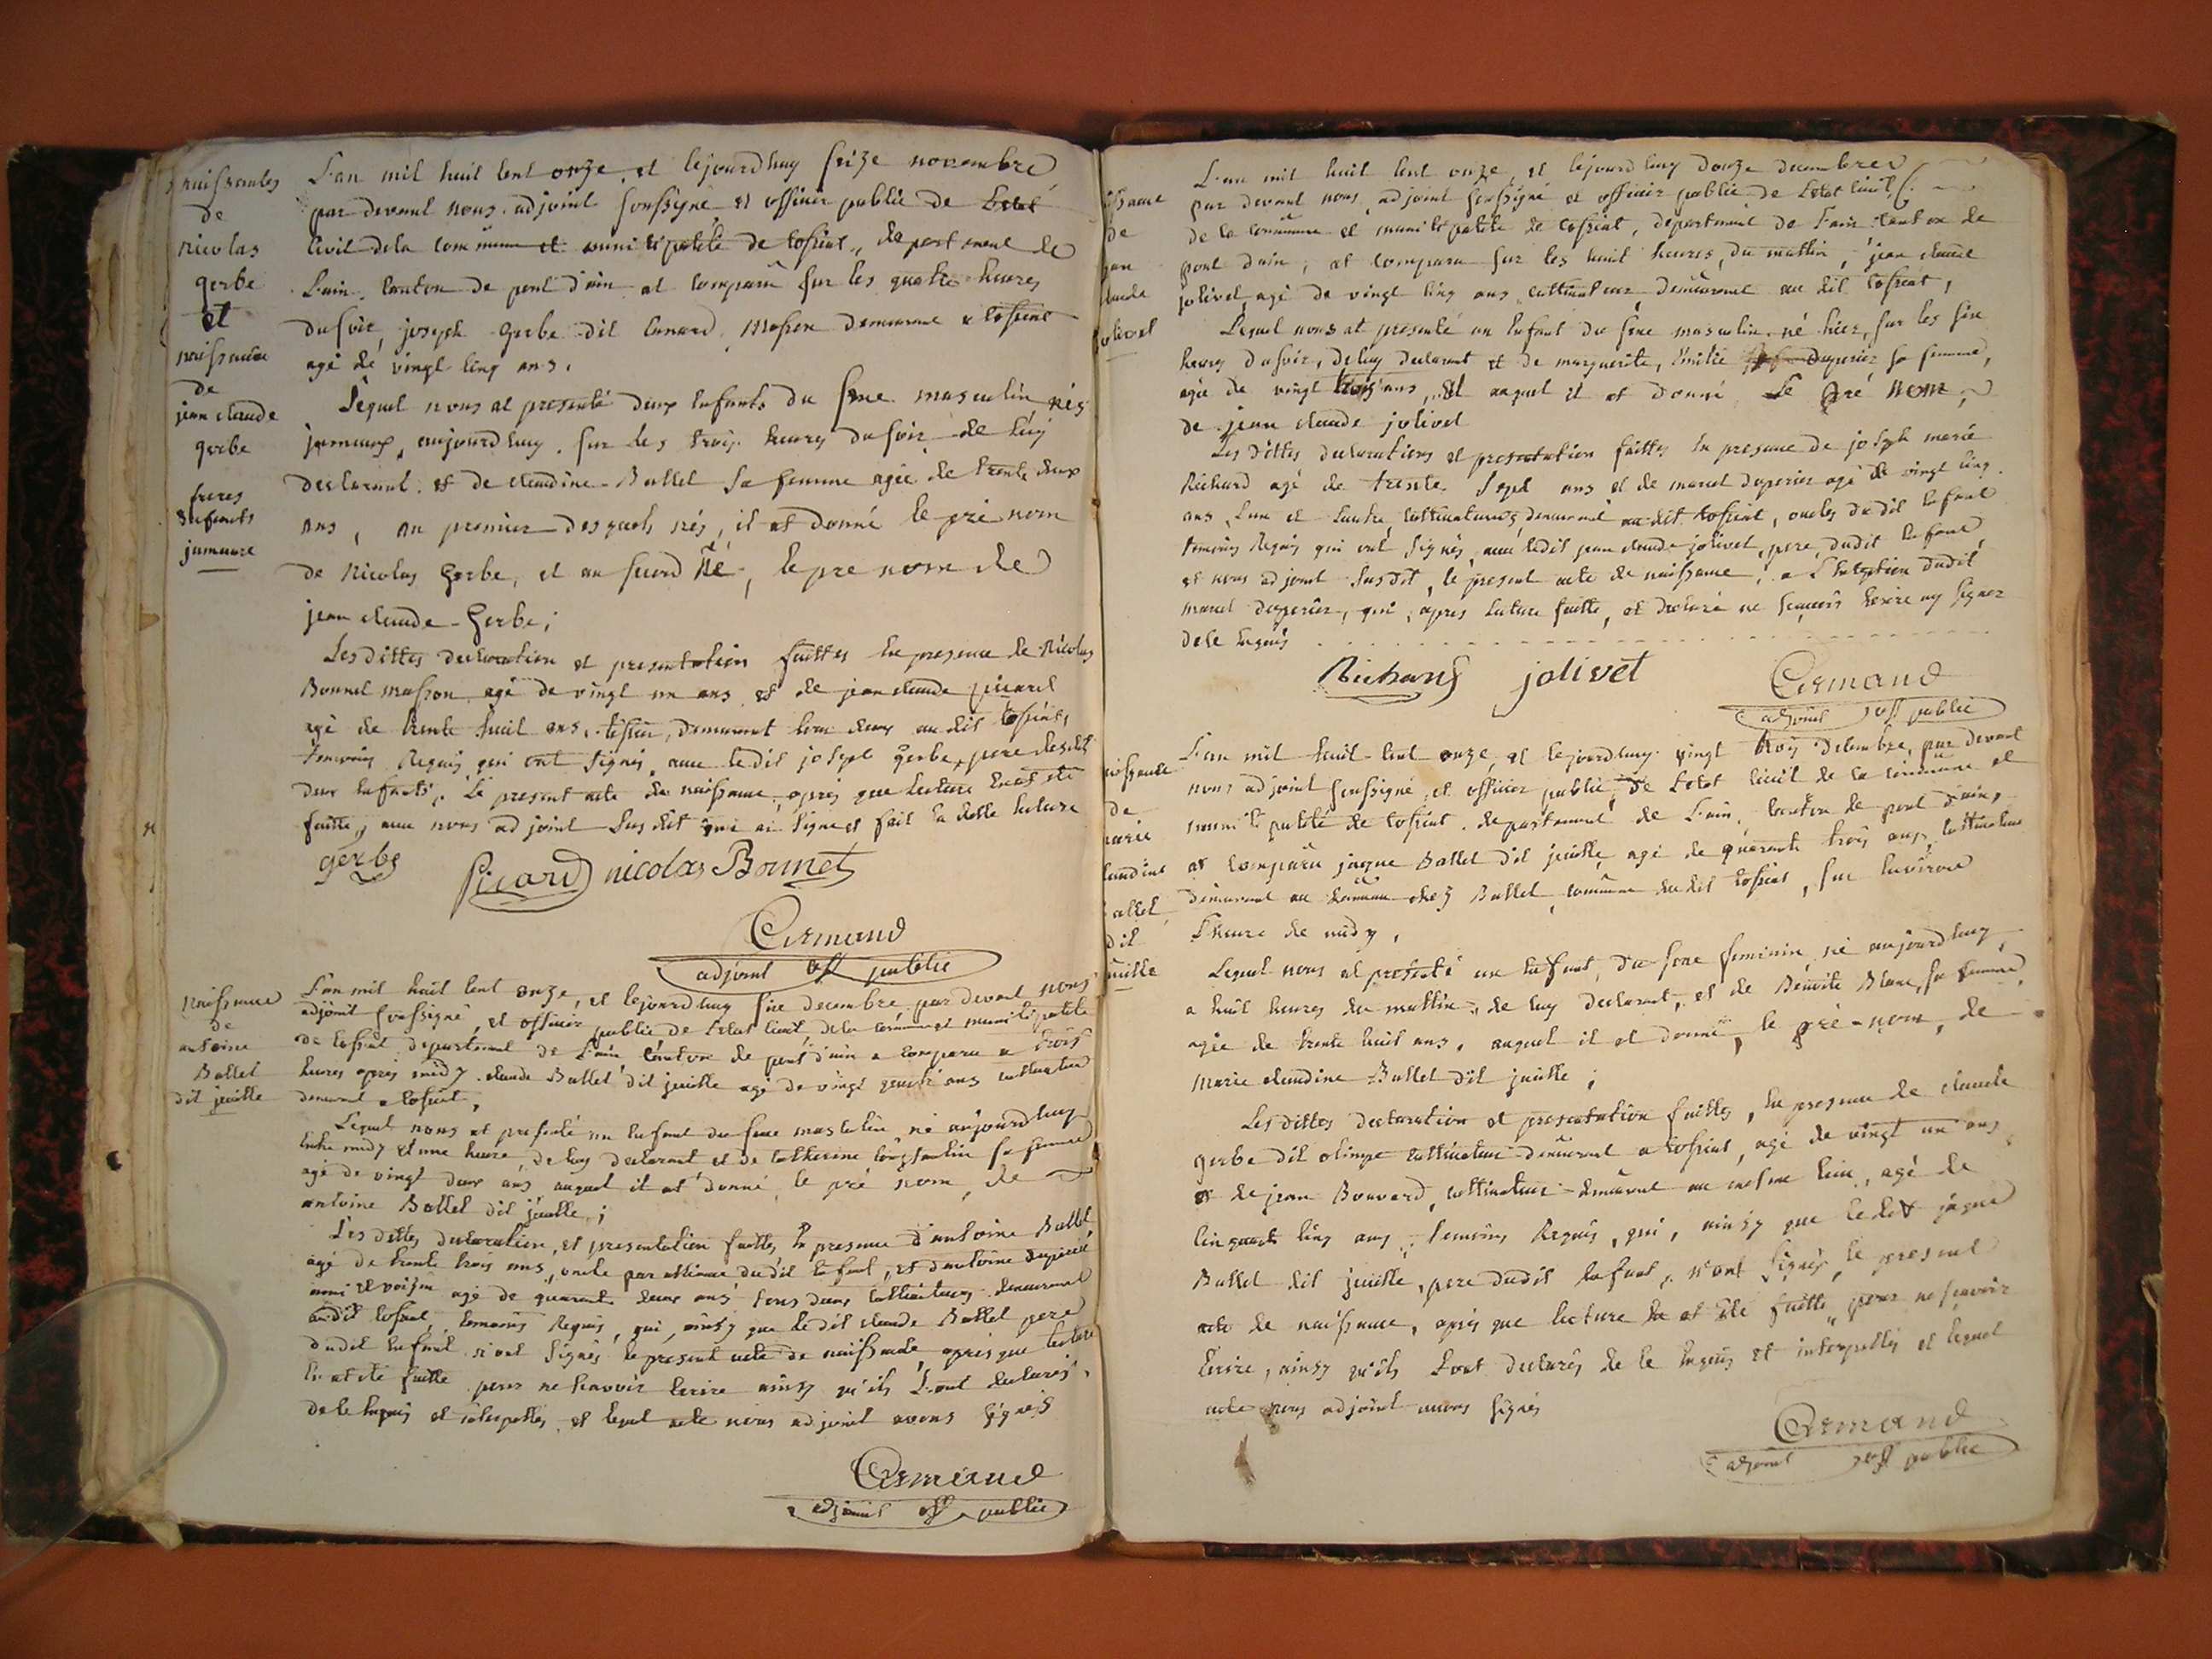 naissances
de
nicolas
gerbe
et
naissance
de
jean claude
gerbe
freres
Enfants
jumeaux
L'an mil huit cent onze, et cejourdhuy seize novembre
par devant nous adjoint soussigné, et officier public de L'etat
civil de la commune et municipalité de tossiat, departement de
L'ain, canton de pont d'ain at comparu sur les quatre heures
du soir, joseph gerbe dit Canard, masson demeurant a tossiat
agé de vingt cinq ans.
Lequel nous at presenté deux Enfants du sexe masculin nés
jumeaux, aujourdhuy, sur les trois heures du soir de luy
declarant, et de claudine Ballet sa femme agée de trente deux
ans, au premier desquels nés, il at donné le pré nom
de Nicolas gerbe, et au second Né, le pre nom de
jean claude Gerbe;
Les dittes declaration et presentation faittes En presence de Nicolas
Bonnet masson agé de vingt un ans et de jean claude picard
agé de trente huit ans, tissier, demeurant tous deux au dit tossiat,
temoins Requis qui ont signés, avec ledit joseph gerbe, pere desdits
deux Enfants, Le present acte de naissance, apres que lecture En at été
faitte, avec nous adjoint susdit qui ai signé et fait la ditte lecture
gerbe Picard nicolas Bonnet
Armand
adjoint off public
Naissance
de
antoine
Ballet
dit jeuille
L'an mil huit cent onze, et cejourdhuy six decembre, par devant nous
adjoint soussigné, et officier public de L'etat civil de la commune et municipalité
de tossiat departement de L'ain canton de pont d'ain a comparu a trois
heures apres midy, claude Ballet dit jeuille agé de vingt quatre ans cultivateur
demeurant a tossiat,
Lequel nous at presenté un Enfant du sexe masculin né aujourdhuy
Entre midy et une heure, de luy declarant et de catherine sa femme
agé de vingt deux ans auquel il at donné le pré nom, de
antoine Ballet dit jeuille;
Les dittes declaration, et presentation faittes En presence d'antoine Ballet
agé de trente trois ans, oncle par alliance dudit Enfant, et d'antoine duperier
ami et voisin agé de quarante deux ans tous deux cultivateurs demeurant
audit tossiat, temoins Requis, qui, ainsy que ledit claude Ballet pere
dudit Enfant n'ont signés le present acte de naissance, apres que lecture
En at été faitte pour ne scavoir Ecrire ainsy qu'ils L'ont declarés,
de ce Enquis et interpellés, et lequel acte nous adjoint avons signés
Armand
adjoint off public
issance
de
jean
claude
jolivet
L'an mil huit cent onze, et cejourdhuy douze decembre
par devant nous, adjoint soussigné et officier public de L'etat civil
de la commune et municipalité de tossiat, departement de L'ain canton de
pont d'ain, at comparu sur les huit heures, du mattin, jean claude
jolivet agé de vingt cinq ans cultivateur, demeurant au dit tossiat,
Lequel nous at presenté un Enfant du sexe masculin né hier, sur les six
heures du soir, de luy declarant et de marguerite, Emilie duperier sa femme,
agée de vingt trois ans, Et auquel il at donné Le Pré Nom,
de jean claude jolivet
Les dittes declarations et presentation faittes En presence de joseph marie
Richard agé de trente Sept ans et de marcel duperier agé de vingt cinq
ans, L'un et L'autre cultivateurs, demeurant audit tossiat, oncles dudit Enfant
temoins Requis qui ont signés, avec ledit jean claude jolivet, pere dudit Enfant,
et nous adjoint susdit, le present acte de naissance, a L'Exception dudit
marcel duperier, qui, apres lecture faitte, at declaré ne scavoir Ecrire ny signer
de ce Enquis
Richard jolivet
Armand
adjoint off public
aissance
de
marie
claudine
Ballet
dit
jeuille
L'an mil huit cent onze, et cejourdhuy vingt trois decembre, par devant
nous adjoint soussigné, et officier public, de L'etat civil de la commune et
municipalité de tossiat, departement de L'ain, canton de pont d'ain,
at comparu jaque Ballet dit jeuille agé de quarante trois ans, cultivateur
demeurant au hameau chez Ballet, commune dudit tossiat, sur Environ
L'heure de midy,
Lequel nous at presenté un Enfant, du sexe feminin né aujourdhuy
a huit heures du mattin, de luy declarant, et de Benoite Blanc, sa femme
agée de trente huit ans, auquel il at donné, le pré-nom, de
Marie claudine Ballet dit jeuille;
Les dittes declaration et presentation faittes, En presence de claude
gerbe dit olimpe cultivateur demeurant a tossiat, agé de vingt un ans
et de jean Bouvard, cultivateur demeurant au mesme lieu, agé de
cinquante cinq ans, temoins Requis, qui, ainsy que ledit jaque
Ballet dit jeuille, pere dudit Enfant, n'ont signés, le present
acte de naissance, apres que lecture En at été faitte, pour ne scavoir
Ecrire, ainsy qu'ils L'ont declarés de ce Enquis et interpellés et lequel
acte nous adjoint avons signés
Armand
adjoint off public